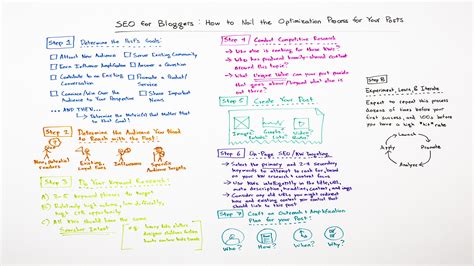 SEO for Bloggers: How to Nail the Optimization Process for Your Posts
Step 1 Determine the Post's Goals:
Attract New Audience
Serve Existing Community
Earn Influencer Amplification
Sway Opinion
Contribute to an Existing Conversation
Promote a Product/Service
Convince/Win Over the Audience to Your Perspective
Share Important News
... AND THEN...
Determine the Metric(s) that Matter most to that Goal!
Step 2 Determine the Audience You Need to Reach with the Post:
New, Potential Readers
Existing, Loyal Fans
Influencers
Specific Audience Targets
Step 3 Do Your Keyword Research!
2-5 keyword phrases to target
Relatively high volume, low difficulty, high CTR opportunity
All terms should have the same Searcher Intent
Step 4 Conduct Competitive Research
Who else is ranking for these KWs?
Who has produced heavily-shared content around this topic?
What Unique Value can your post provide that goes above/beyond what else is out there?
Step 5 Create Your Post
Step 6 On-Page SEO/KW Targeting
Select the primary and 2-4 secondary keywords to attempt to rank for, based on your KW research & content focus
Use KWs intelligently in the title, URL, meta description, headlines, content, and imgs
Consider any old URLs you might redirect and how existing content could/should link to this post
Step 7 Craft an Outreach & Amplification Plan for your Post:
Who?
How?
When?
Why?
Step 8
Experiment, Learn, & Iterate
Expect to repeat this process dozens of times before your first success, and 100s before you have a high "hit" rate
Launch
Promote
Analyze
Apply